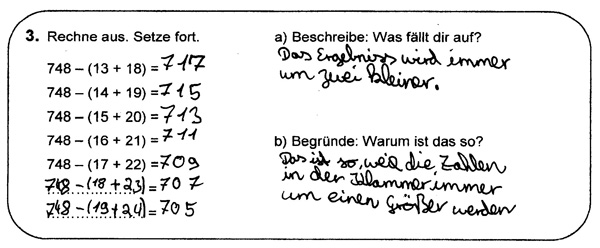 3. Rechne aus. Setze fort.
748 – (13 + 18) = 717
748 – (14 + 19) = 715
748 – (15 + 20) = 713
748 – (16 + 21) = 711
748 – (17 + 22) = 709
748 – (18 + 23) = 707
748 – (19 + 24) = 705
a) Beschreibe: Was fällt dir auf?
Das Ergebniss wird immer
um zwei kleiner.
b) Begründe: Warum ist das so?
Das ist so, weil die Zahlen
in der Klammer immer
um einen Größer werden